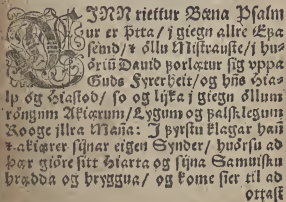 EINN riettur Bœna Psalm
ur er þtta / j giegn allre Eþa
semd / t ôllu Mistrauste / j hu-
ôriū David þorlœtur sig vppa
Guds Fyrerheit / og hñs Hia-
lp og Hiastod / so og lijka j giegn ôllum
rôngum Akiœrum / Lygum og Falsklegum
Rooge jllra Maña: I Fyrstu klagar hañ
t akiœrer sijnar eigen Synder / huôrsu ad
þœr giôre sitt Hiarta og sijna Samuisku
hrœdda og hryggua / og kome sier til ad
ottast